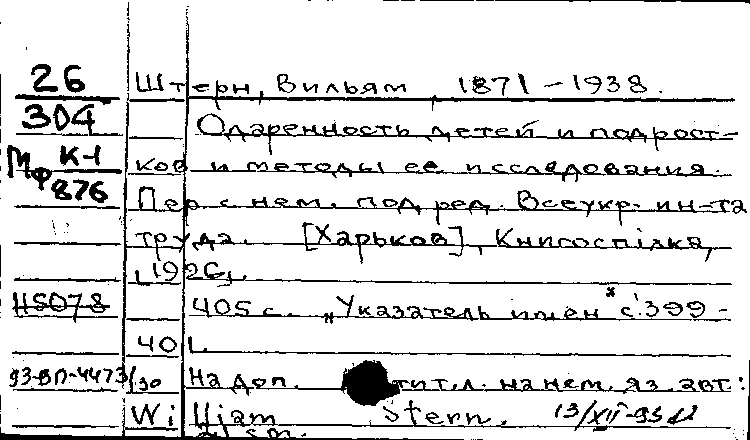 26
304
Мф К-1
876
Штерн, Вильям, 1871-1938.
Одаренность детей и подрост-
ков и методы ее исследования.
Пер с нем. под ред. Всеукр. ин-та
труда. [Харьков], Книгоспілка,
[1926].
HS078
405 с. „Указатель имен" с. 399-
401.
93-ВП-4473/30
На доп. тит. л. на нем. яз. авт:
William Stern. 13/XII-93